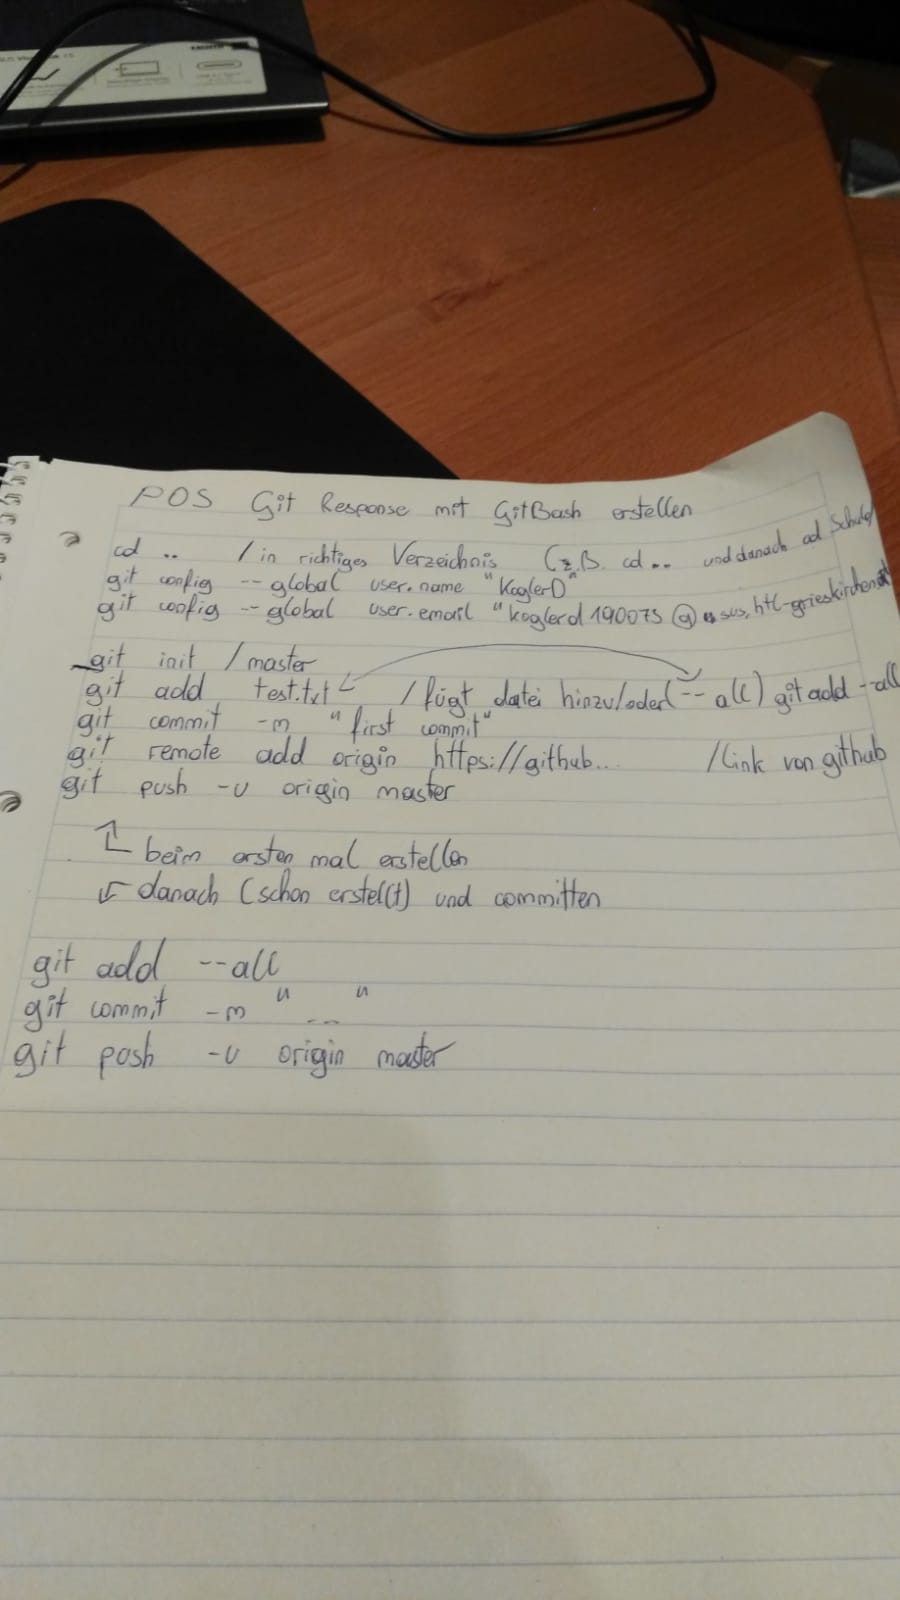 POS Git Response mit GitBash erstellen
cd .. / in richtiges Verzeichnis (z.B. cd .. und danach cd Schule)
git config --global user.name "KoglerD"
git config --global user.email "koglerd190073@sus.htl-grieskirchen.at"
git init / master
git add test.txt / fügt datei hinzu/oder(--all) git add --all
git commit -m "first commit"
git remote add origin https://github... /Link von github
git push -u origin master
beim ersten mal erstellen
danach (schon erstellt) und committen
git add --all
git commit -m "..."
git push -u origin master